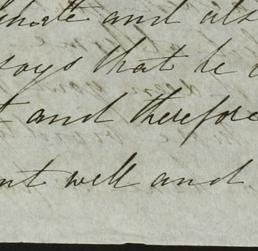 and als
says that he
t and therefore
nt well and